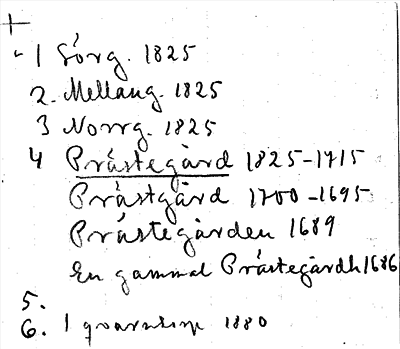 1 Sörg. 1825
2. Mellang. 1825
3 Norrg. 1825
4 Prästegård 1825-1715
Prästgård 1700-1695
Prästegården 1689
En gammal Prästegårdh 1686
5.
6. 1 1880